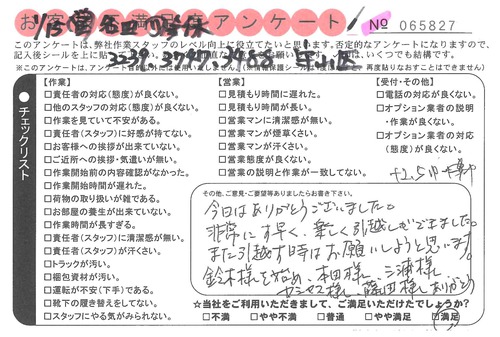 お客様満足度アンケート
No 065827
このアンケートは、弊社作業スタッフのレベル向上に役立てたいと思います。否定的なアンケートになりますので、
※このアンケートは、アンケート
●チェックリスト
【作業】
□責任者の対応(態度)が良くない。
□他のスタッフの対応(態度)が良くない。
□作業を見ていて不安がある。
□責任者(スタッフ)に好感が持てない。
□お客様への挨拶が出来ていない。
□ご近所への挨拶・気遣いが無い。
□作業開始前の内容確認がなかった。
□作業開始時間が遅れた。
□荷物の取り扱いが雑である。
□お部屋の養生が出来ていない。
□作業時間が長すぎる。
□責任者(スタッフ)に清潔感が無い。
□責任者(スタッフ)が汗くさい。
□トラックが汚い。
□梱包資材が汚い。
□運転が不安(下手)である。
□靴下の履き替えをしてない。
□スタッフにやる気がみられない。
【営業】
□見積もり時間に遅れた。
□見積もり時間が長い。
□営業マンに清潔感が無い。
□営業マンが煙草くさい。
□営業マンが汗くさい。
□営業態度が良くない。
□営業の説明と作業が一致してない。
【受付・その他】
□電話の対応が良くない。
□オプション業者の説明
・作業が良くない。
□オプション業者の対応
(態度)が良くない。
その他、ご意見・ご要望等ありましたらお書き下さい。
今日はありがとうございました。
非常に早く、楽しく引越しができました。
また引越す時はお願いしようと思います。
鈴木様を始め、本田様、三浦様
ヤシマス様、藤田様ありがとう
☆当社をご利用いただきまして、ご満足いただけたでしょうか?
□不満 □やや不満 □普通 □やや満足 □満足